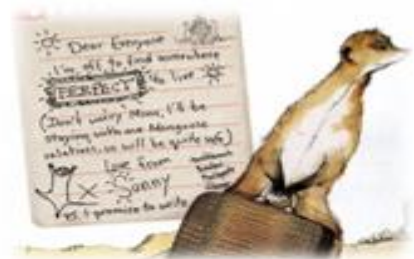 Dear Everyone
I'm off to find somewhere
PERFECT to live
(Don't worry Mum, I'll be
staying with our Mongoose
relations, so will be quite safe)
Love from
x Sunny
PS. I promise to write